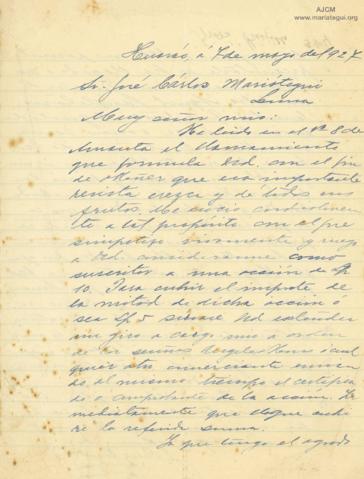 AJCM
www.mariategui.org
Huarás, á 7 de mayo de 1927
Sr. José Carlos Mariátegui
Lima
Muy señor mío:
He leido en el Nº 8 de
Amauta el llamamiento
que formula Ud. con el fin
de obtener que esa importante
revista crezca y dé todos sus
frutos. Me
te a tal propósito con el que
simpatizo vivamente y ruego
a Ud. considerarme como
suscritor a una acción de Lp
10. Para cubrir el importe de
la mitad de dicha acción ó
sea Lp 5 sírvase Ud extender
un giro a cargo mio a orden
de los señores
quier otro comerciante
do, al mismo tiempo el certifica
do o comprobante de la acción. In
mediatamente que llegue
re la referida suma.
Ya que tengo el agrado